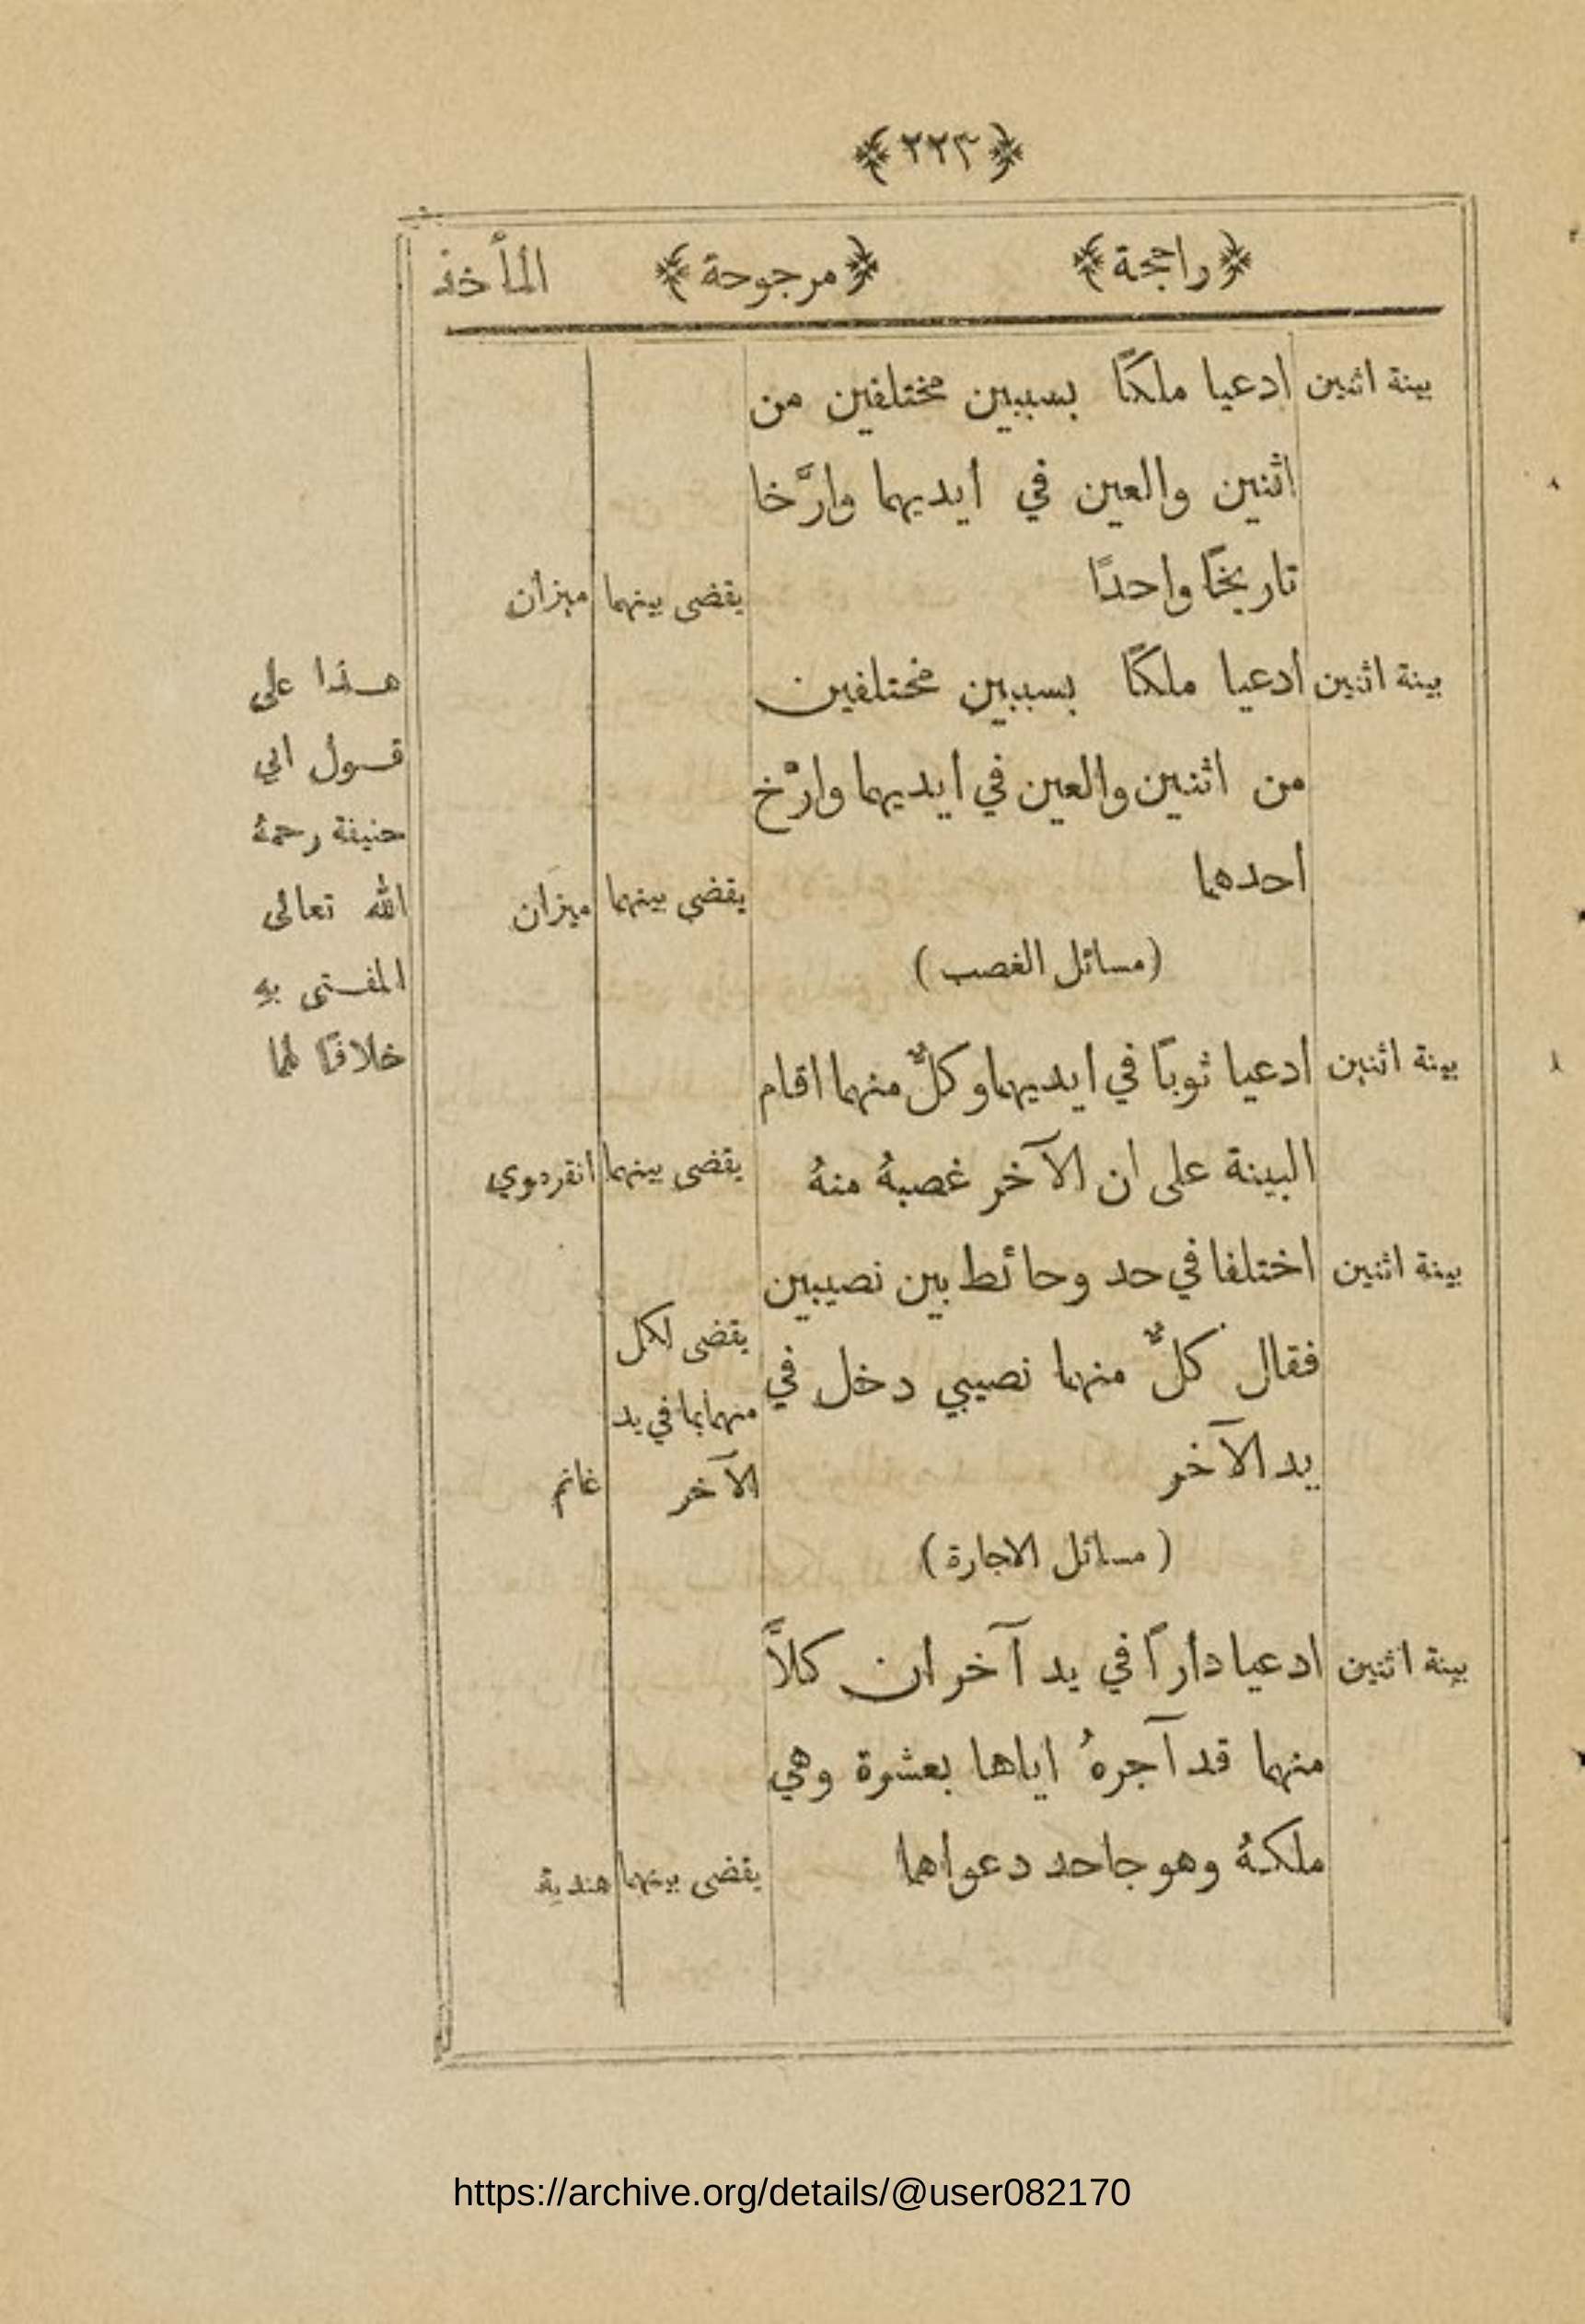 ﴿٢٢٣﴾
﴿راجحة﴾ ﴿مرجوحة﴾ المأخذ
بينة اثنين ادعيا ملكًا بسببين مختلفين من
اثنين والعين في ايديهما وارَّخا
تاريخًا واحدًا يقضى بينهما ميزان
بينة اثنين ادعيا ملكًا بسببين مختلفين
من اثنين والعين في ايديهما وارَّخ
احدهما يقضى بينهما ميزان
(مسائل الغصب)
بينة اثنين ادعيا ثوبًا في ايديهما وكلٌّ منهما اقام
البينة على ان الآخر غصبهُ منهُ يقضى بينهما انقردوي
بينة اثنين اختلفا في حد وحائط بين نصيبين
فقال كلٌّ منهما نصيبي دخل في يقضى لكل
منهما بما في يد
يد الآخر الآخر غانم
(مسائل الاجارة)
بينة اثنين ادعيا دارًا في يد آخر ان كلاًّ
منهما قد آجرهُ اياها بعشرة وهي
ملكهُ وهو جاحد دعواهما يقضى بينهما هندية
هذا على
قول ابي
حنيفة رحمهُ
الله تعالى
المفتى بهِ
خلافًا لهما
https://archive.org/details/@user082170